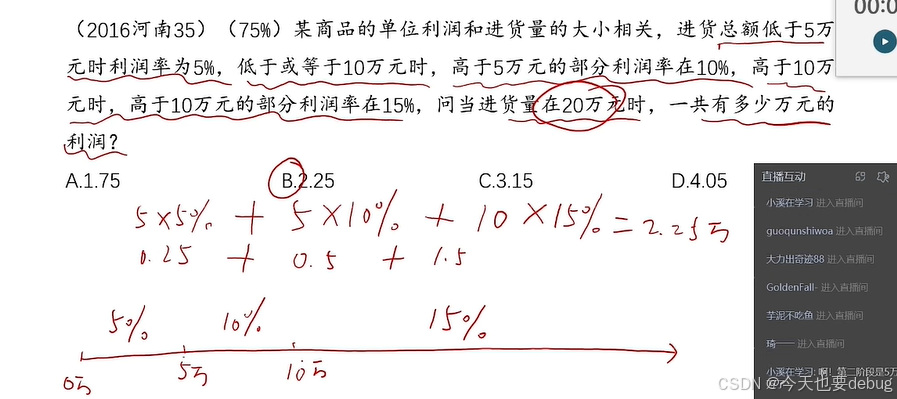 （2016河南35）（75%）某商品的单位利润和进货量的大小相关，进货总额低于5万
元时利润率为5%，低于或等于10万元时，高于5万元的部分利润率在10%，高于10万
元时，高于10万元的部分利润率在15%，问当进货量在20万元时，一共有多少万元的
利润？
A.1.75 B.2.25 C.3.15 D.4.05
5×5% + 5×10% + 10×15% = 2.25万
0.25 + 0.5 + 1.5
5% 10% 15%
0万 5万 10万
00:0
直播互动
小溪在学习 进入直播间
guoqunshiwoa 进入直播间
大力出奇迹88 进入直播间
GoldenFall- 进入直播间
芋泥不吃鱼 进入直播间
琦一一 进入直播间
小溪在学习: 啊！第二阶段是5万
CSDN @今天也要debug